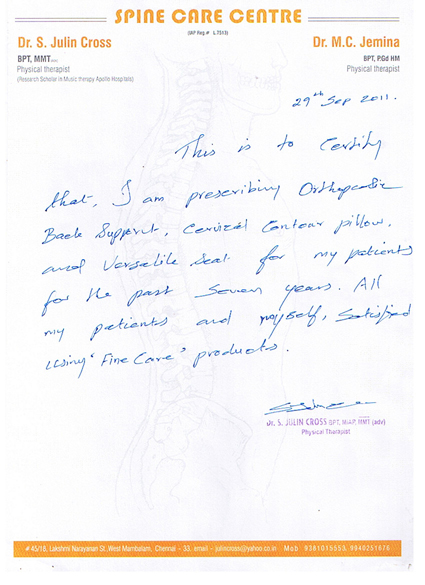 SPINE CARE CENTRE
Dr. S. Julin Cross
BPT, MMT
Physical therapist
(Research Scholar in Music therapy Apollo Hospitals)
Dr. M.C. Jemina
BPT, PGd HM
Physical therapist
29th Sep 2011.
This is to Certify
that, I am prescribing Orthopaedic
Back Support, Cervical Contour pillow,
and Versatile Seat for my patients
for the past Seven years. All
my patients and myself, Satisfied
using 'Fine Care' products.
Dr. S. JULIN CROSS BPT, MIAP, MMT (adv)
Physical Therapist
# 45/18, Lakshmi Narayanan St.,West Mambalam, Chennai - 33. email - julincross@yahoo.co.in Mob